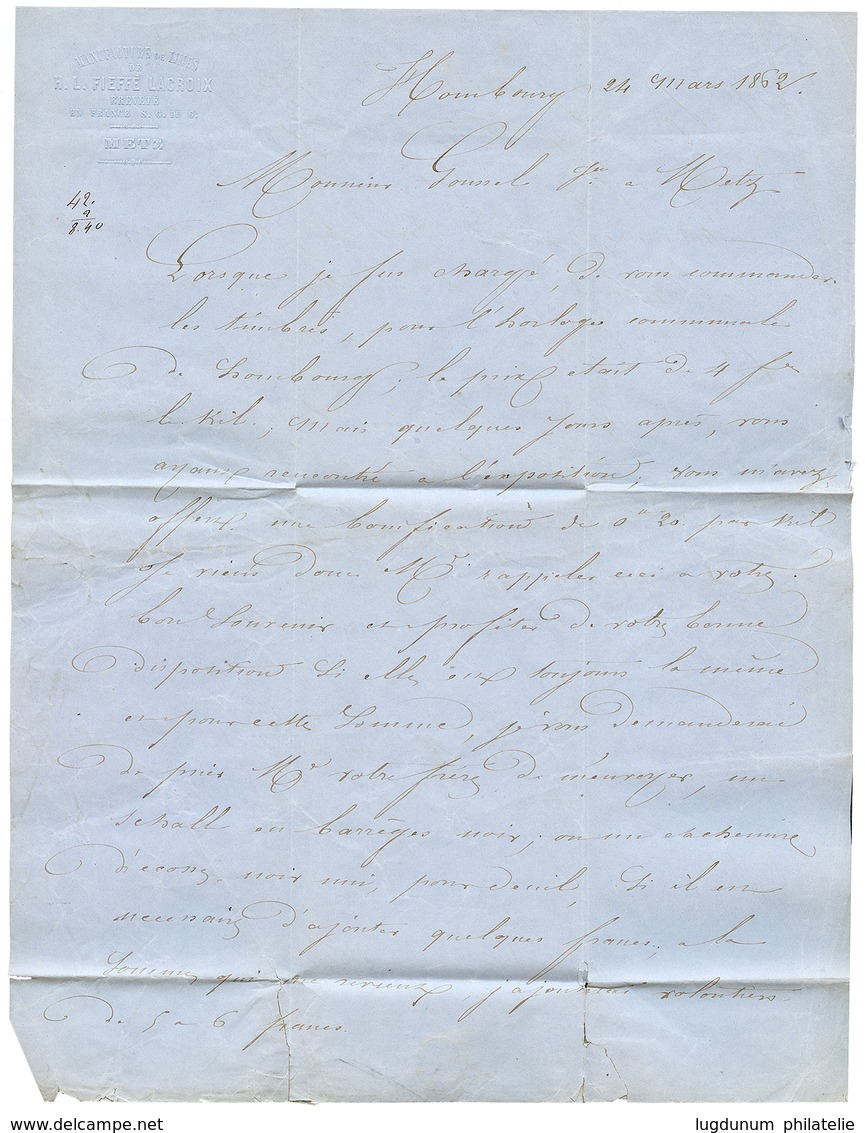 MANUFACTURE DE LIMES
DE
H. L. FIEFFÉ LACROIX
BREVETÉ
EN FRANCE S. G. D. G.
METZ
Hombourg 24 Mars 1862.
Monsieur Goussel Jne a Metz
42.
8.40
Lorsque je fus chargé, de vous commander
les timbres, pour l'horloge communale
de hombourg; le prix etait de 4 frs
le Kil.; Mais quelques Jours après, vous
ayant rencontré a l'exposition; vous m'avez
offert une bonification de 0 20. par Kil
Je viens donc Mr. rappeler ceci a votre
bon Souvenir et profiter de votre bonne
disposition Si elle est toujours la même
et pour cette Somme, je vous demanderai
de prier Mr votre frère de m'envoyer, un
schall en barrèges noir; ou un cachemire
d'ecosse noir uni, pour deuil, Si il est
necessaire d'ajouter quelques francs, a la
Somme qui me revient, j'ajouterai volontiers
de 5 a 6 francs.
www.delcampe.net
lugdunum philatelie